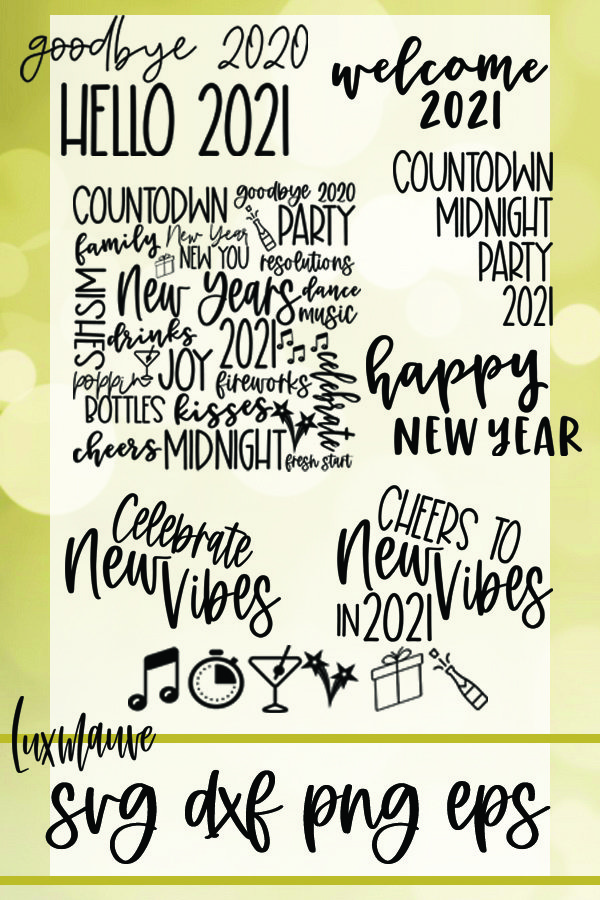 goodbye 2020
HELLO 2021
welcome
2021
COUNTODWN
MIDNIGHT
PARTY
2021
COUNTODWN goodbye 2020
PARTY
family New Year
NEW YOU resolutions
WISHES
New Years dance
music
drinks 2021
poppin JOY fireworks
celebrate
BOTTLES kisses
cheers MIDNIGHT fresh start
happy
NEW YEAR
Celebrate
New Vibes
CHEERS TO
New Vibes
IN 2021
Luxmauve
svg dxf png eps